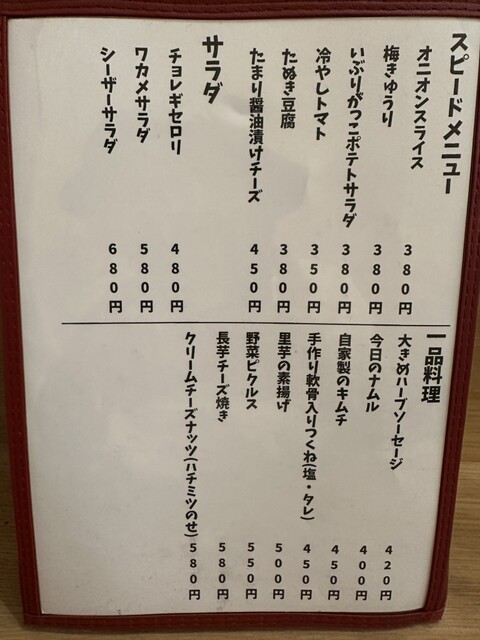 スピードメニュー
オニオンスライス 380円
梅きゅうり 380円
いぶりがっこポテトサラダ 380円
冷やしトマト 350円
たぬき豆腐 380円
たまり醤油漬けチーズ 450円
サラダ
チョレギセロリ 480円
ワカメサラダ 580円
シーザーサラダ 680円
一品料理
大きめハーブソーセージ 420円
今日のナムル 400円
自家製のキムチ 450円
手作り軟骨入りつくね(塩・タレ) 450円
里芋の素揚げ 500円
野菜ピクルス 550円
長芋チーズ焼き 580円
クリームチーズナッツ(ハチミツのせ) 580円